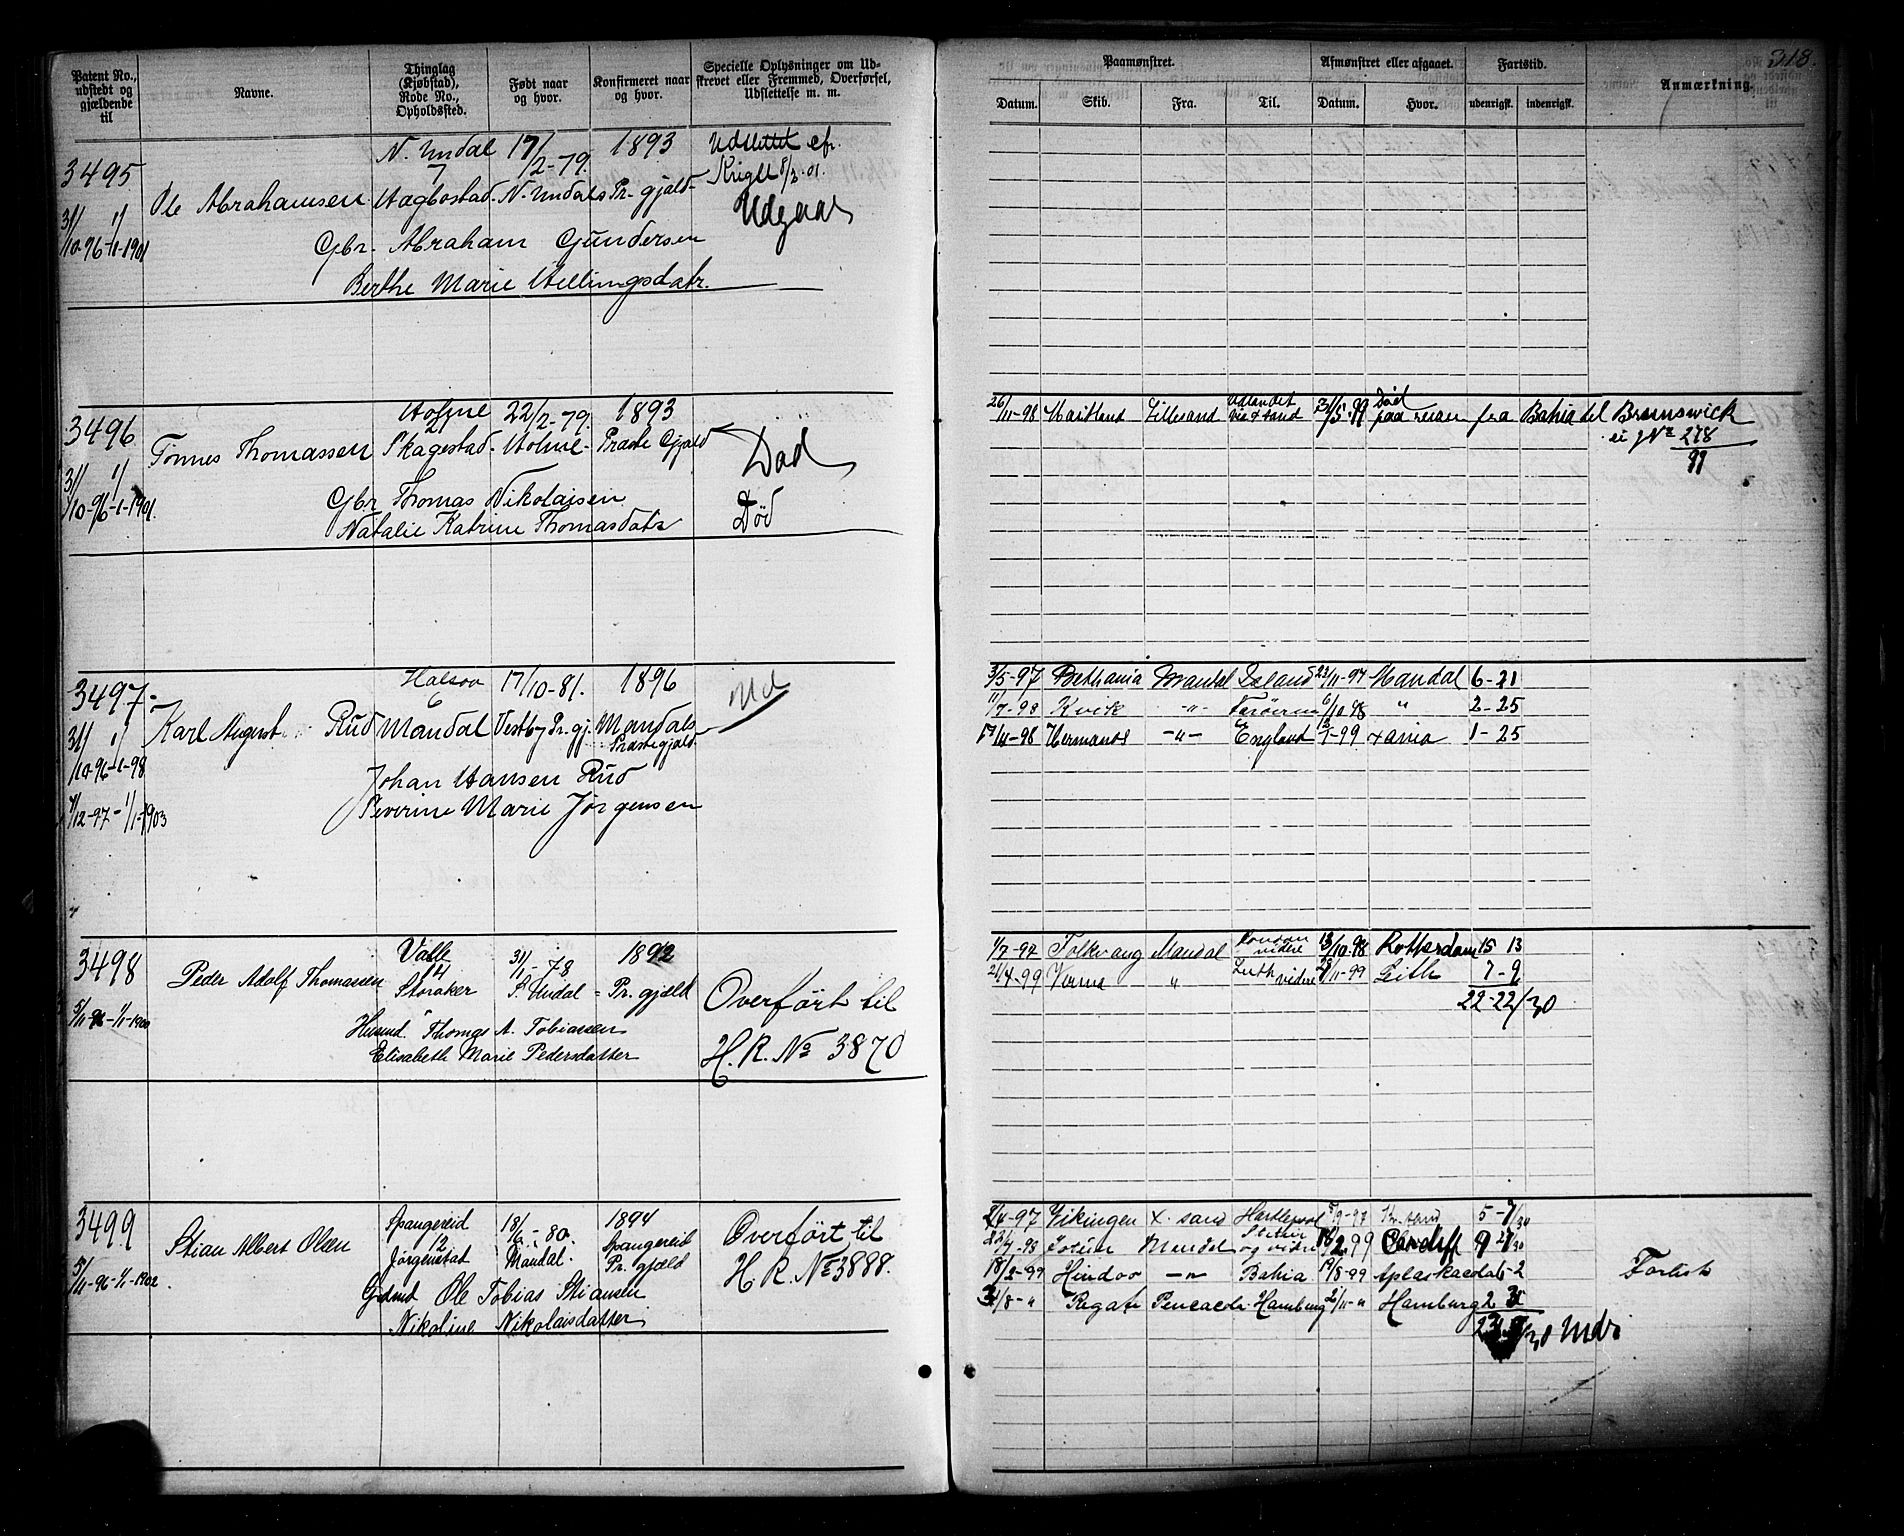 318.
Patent No., udstedt og gjældende til
Navne.
Thinglag (Kjøbstad), Rode No., Opholdssted.
Født naar og hvor.
Konfirmeret naar og hvor.
Specielle Oplysninger om Udskrevet eller Fremmed, Overførsel, Udslettelse m. m.
Paamønstret.
Afmønstret eller afgaaet.
Fartstid.
Anmærkning.
Datum. Skib. Fra. Til. Datum. Hvor. udenrigsk. indenrigsk.
N. Undal 17/2-79. 1893 Udslettet efr.
3495 7
Ole Abrahamsen Hægbostad. N. Undals Pr. gjeld-
31/10-96-1/1-1901 Udgaar
Gbr. Abraham Gundersen
Berthe Marie Hellingsdatr.
Holme 22/2-79. 1893
3496 2
Tønnes Thomassen Skagestad. Holme- Præste Gjæld Død
31/10-96-1/1-1901.
Gbr Thomas Nikolaisen
Natalie Katrine Thomasdatr Død
26/11-98 Maitland Lillesand Udlandet via X sand /5-99 Død paa reisen fra Bahia del Brunswick
J No 278
99
Halsaa 17/10-81. 1896 Ud
3497- 6
Karl August Rud Mandal Vestby Pr. gj. Mandals Præstegjæld
31/10-96-1/1-98
Johan Hansen Rud
/12-97-1/1-1903 Severine Marie Jørgensen
3/5-97 Bethania Mandal Island 23/11-97 Mandal 6-21
11/7-98 Kvik -"- Færøerne 6/10-98 " 2-25
/11-98 Hermanos -"- England /1-99 Xania 1-25
Valle 31/1-78 1892
3498 14
Peder Adolf Thomassen Storaker S. Undal - Pr. gjæld
5/11-96-1/1-1900 Overført til
Husmd. Thomas A. Tobiassen
Elisabeth Marie Pedersdatter H. R. No 3870
1/7-97 Folkvang Mandal London videre 13/10-98 Rotterdam 15 13
21/4-99 Verma " Leith videre /11-99 Leith 7-9
22-22/30
Spangereid 18/6-80. 1894 Overført til
3499 12
Stian Albert Olsen Jørgenstad Mandal. Spangereid Pr. gjæld
5/11-96-1/1-1902. H. R. No 3888.
Gdmd Ole Tobias Stiansen
Nikoline Nikolaisdatter
2/4-97 Vikingen X. sand Hartlepool /9-97 Kr. sand 5-7/30
22/7-98 Mandal og videre /2 99 Cardiff 9
18/2-99 Hindoo -"- Bahia 19/8-99 2
/8-" Regate Pencacola Hamburg 2/11-" Hamburg 2
Mdr